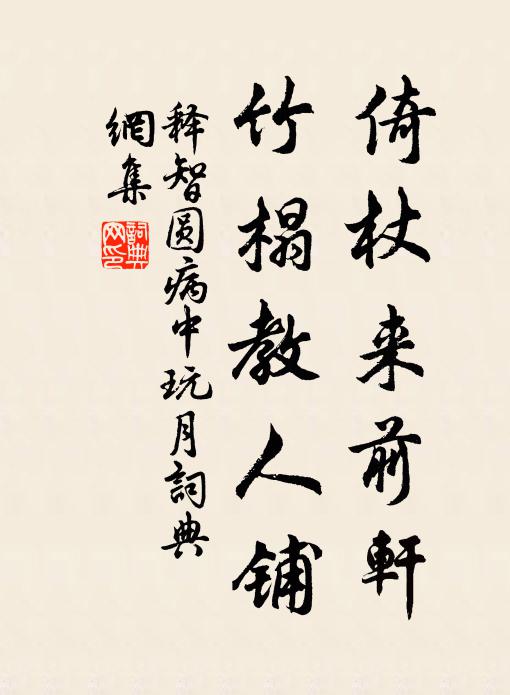 倚杖来前軒
竹榻教人铺
释智圆病中玩月詞典
網集
詞典
网印